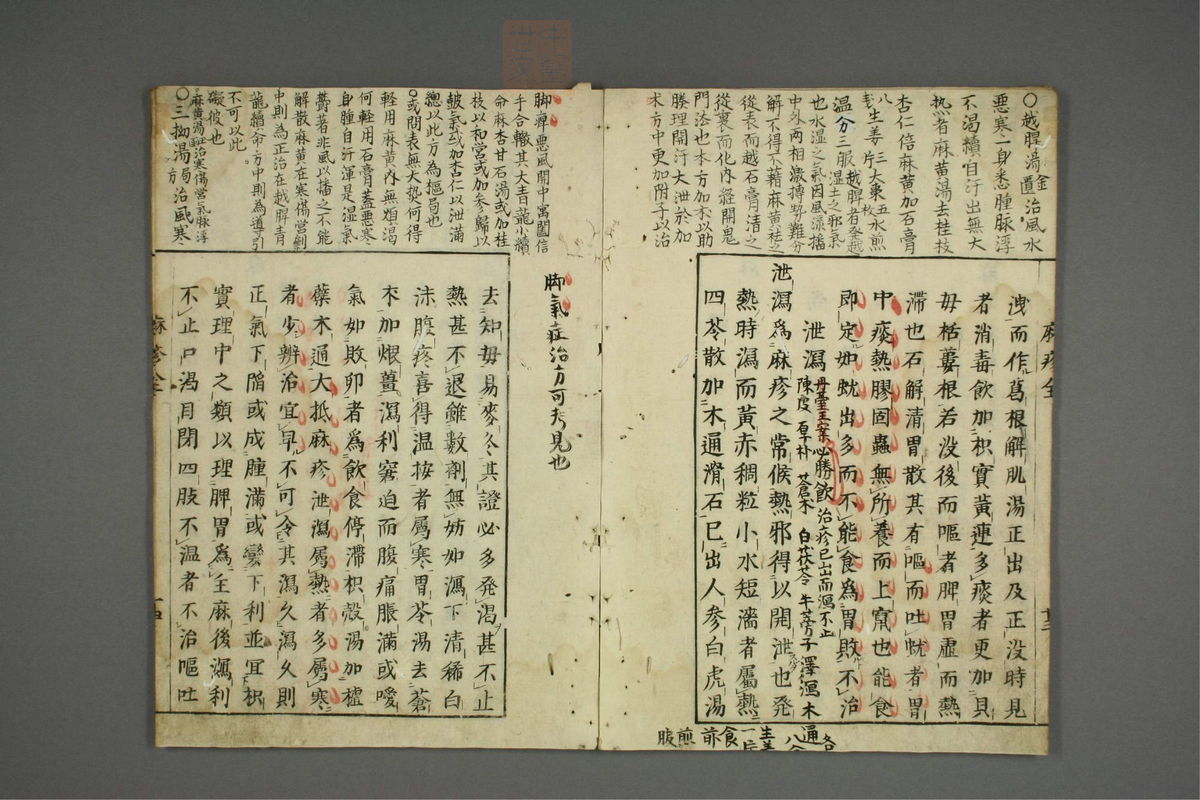 ○越脾湯 金匱 治風水
惡寒一身悉腫脉浮
不渴續自汗出無大
热者麻黄湯去桂枝
杏仁倍麻黄加石膏
八生姜 片三大棗 枚五水煎
温分三服 越脾者發越湿土之邪氣
也水湿之氣因風藻搐
中外兩相激搏勢難分
解不得不藉麻黄祛之
從表而越石膏清之
從裏而化内経開鬼
門法也本方加朮以助
腠理開汗大泄於加
朮方中更加附子以治
脚痺悪風開中寓闔信
手合轍其大青龍小續
命麻杏甘石湯或加桂
枝以和営或加参歸以
皷氣或加杏仁以泄滿
總以此方為樞局也
○或問表無大热何得
軽用麻黄内無煩渇
何軽用石膏蓋悪寒
身腫自汗渾是湿氣
欝著非風以播之不能
解散麻黄在寒傷営剤
中則為正治在越脾青
龍續命方中則為導引
不可以此
礙彼也
麻黄湯正治寒傷営氣脉浮
○三拗湯 局方 治風寒
洩而作葛根解肌湯正出及正没時見
者消毒飲加枳實黄連多痰者更加貝
母栝蔞根若没後而嘔者脾胃虚而熱
滞也石解清胃散其有嘔而吐蚘者胃
中痰熱膠固蟲無所養而上竄也能食
即定如蚘出多而不能食爲胃敗不治
泄瀉 丹臺玉案必勝飲 治疹已出而瀉不止
陳皮 厚朴 蒼朮 白茯苓 牛蒡子 澤瀉 木
通 各八分
生姜一片 食前煎服
泄瀉爲麻疹之常候熱邪得以開泄也発
熱時瀉而黄赤稠粒小水短濇者屬熱
四苓散加木通滑石已出人参白虎湯
脚氣症治方可考見也
去知母易麥冬其證必多発渇甚不止
熱甚不退雖數劑無妨如瀉下清稀白
沫腹疼喜得温按者屬寒胃苓湯去蒼
朮加煨薑瀉利窘迫而腹痛脹滿或噯
氣如敗卵者爲飲食停滞枳殻湯加櫨
蘖木通大抵麻疹泄瀉屬熱者多屬寒
者少辨治宜早不可令其瀉久瀉久則
正氣下陷或成腫滿或變下利並宜枳
實理中之類以理脾胃爲主麻後瀉利
不止口渇目閉四肢不温者不治嘔吐